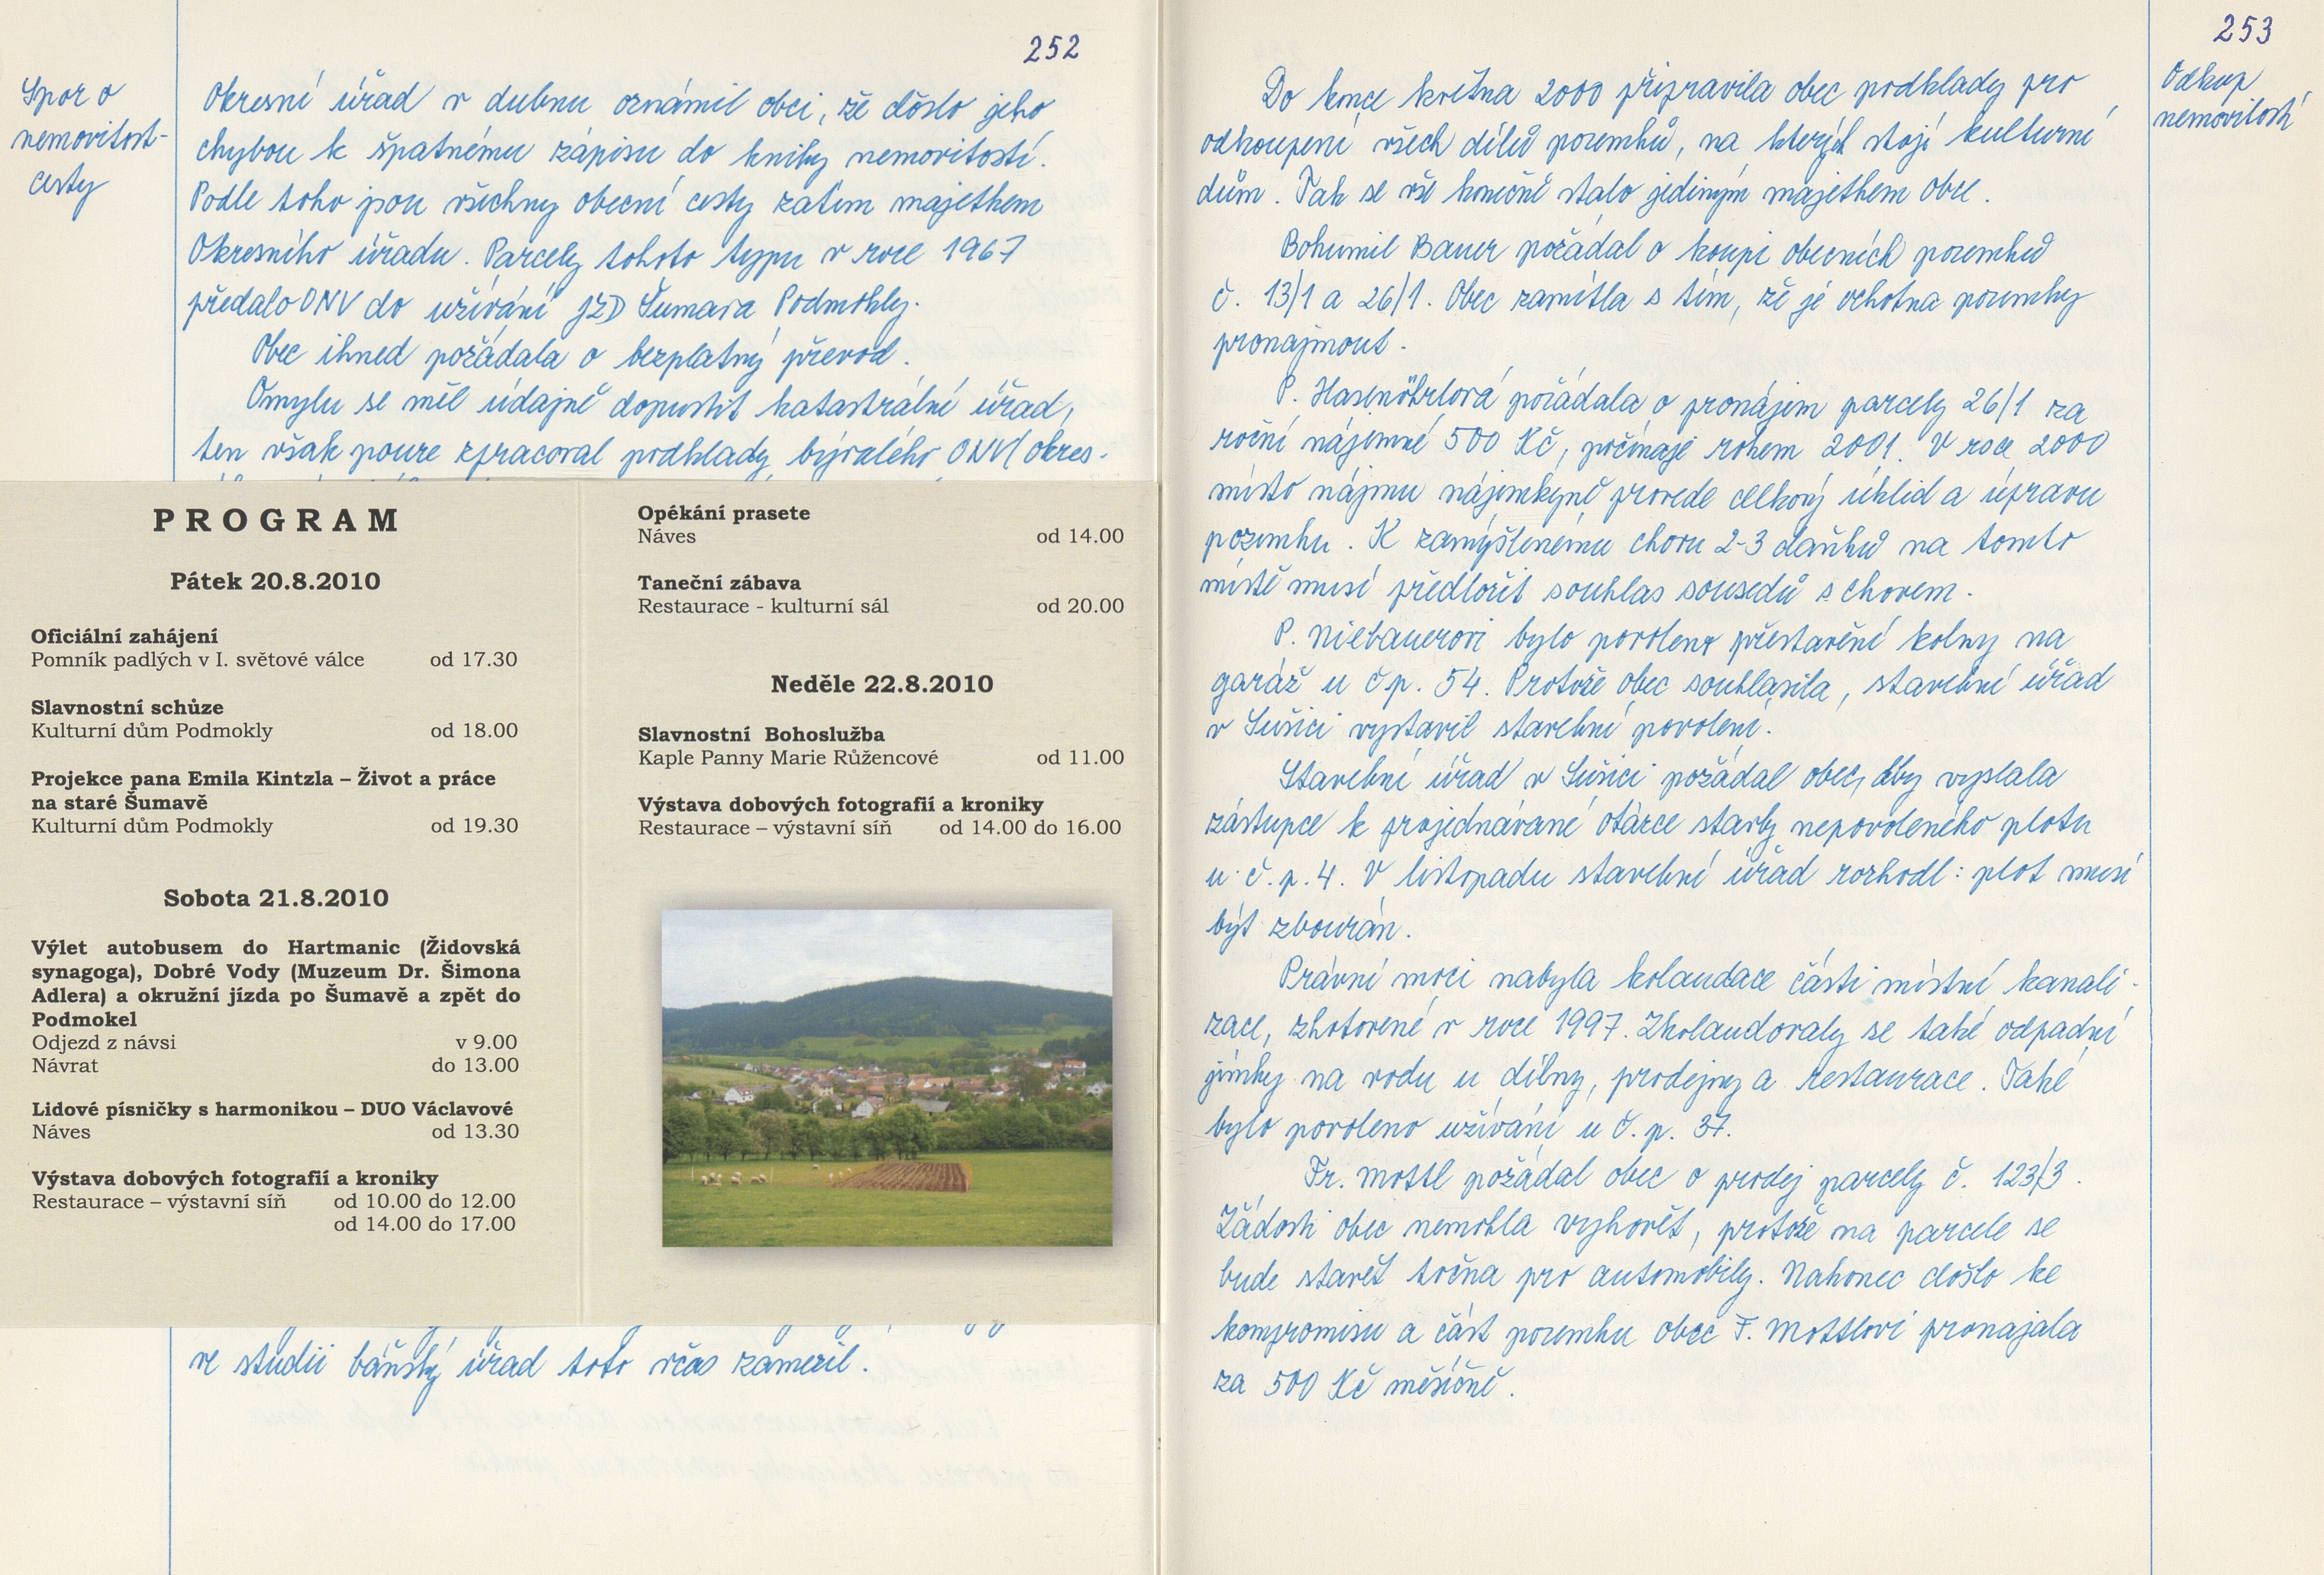 252
Spor o
nemovitost-
cesty
Okresní úřad v dubnu oznámil obci, že došlo jeho
chybou k špatnému zápisu do knihy nemovitostí.
Podle toho jsou všechny obecní cesty zatím majetkem
Okresního úřadu. Parcely tohoto typu v roce 1967
předalo ONV do užívání JZD Šumava Podmokly.
Obec ihned požádala o bezplatný převod.
Omylu se měl údajně dopustit katastrální úřad,
ten však pouze zpracoval podklady bývalého ONV/okres-
PROGRAM
Pátek 20.8.2010
Oficiální zahájení
Pomník padlých v I. světové válce od 17.30
Slavnostní schůze
Kulturní dům Podmokly od 18.00
Projekce pana Emila Kintzla – Život a práce
na staré Šumavě
Kulturní dům Podmokly od 19.30
Sobota 21.8.2010
Výlet autobusem do Hartmanic (Židovská
synagoga), Dobré Vody (Muzeum Dr. Šimona
Adlera) a okružní jízda po Šumavě a zpět do
Podmokel
Odjezd z návsi v 9.00
Návrat do 13.00
Lidové písničky s harmonikou – DUO Václavové
Náves od 13.30
Výstava dobových fotografií a kroniky
Restaurace – výstavní síň od 10.00 do 12.00
od 14.00 do 17.00
Opékání prasete
Náves od 14.00
Taneční zábava
Restaurace - kulturní sál od 20.00
Neděle 22.8.2010
Slavnostní Bohoslužba
Kaple Panny Marie Růžencové od 11.00
Výstava dobových fotografií a kroniky
Restaurace – výstavní síň od 14.00 do 16.00
ve studii báňský úřad toto včas zamezil.
253
Odkup
nemovitostí
Do konce května 2000 připravila obec podklady pro
odkoupení všech dílců pozemků, na kterých stojí kulturní
dům. Tak se vše konečně stalo jediným majetkem obce.
Bohumil Bauer požádal o koupi obecních pozemků
č. 13/1 a 26/1. Obec zamítla s tím, že je ochotna pozemky
pronajmout.
P. Hasenöhrlová požádala o pronájem parcely 26/1 za
roční nájemné 500 Kč, počínaje rokem 2001. V roce 2000
místo nájmu nájemkyně provede celkový úklid a úpravu
pozemku. K zamýšlenému chovu 2-3 daňků na tomto
místě musí předložit souhlas sousedů s chovem.
P. Niebauerovi bylo povoleno přestavění kolny na
garáž u čp. 54. Protože obec souhlasila, stavební úřad
v Sušici vystavil stavební povolení.
Stavební úřad v Sušici požádal obec, aby vyslala
zástupce k projednávané otázce stavby nepovoleného plotu
u č. p. 4. V listopadu stavební úřad rozhodl: plot musí
být zbourán.
Právní moci nabyla kolaudace části místní kanali-
zace, zhotovené v roce 1997. Zkolaudovaly se také odpadní
jímky na vodu u dílny, prodejny a restaurace. Také
bylo povoleno užívání u č. p. 37.
Fr. Mottl požádal obec o prodej parcely č. 123/3.
Žádosti obec nemohla vyhovět, protože na parcele se
bude stavět točna pro automobily. Nakonec došlo ke
kompromisu a část pozemku obec F. Mottlovi pronajala
za 500 Kč měsíčně.